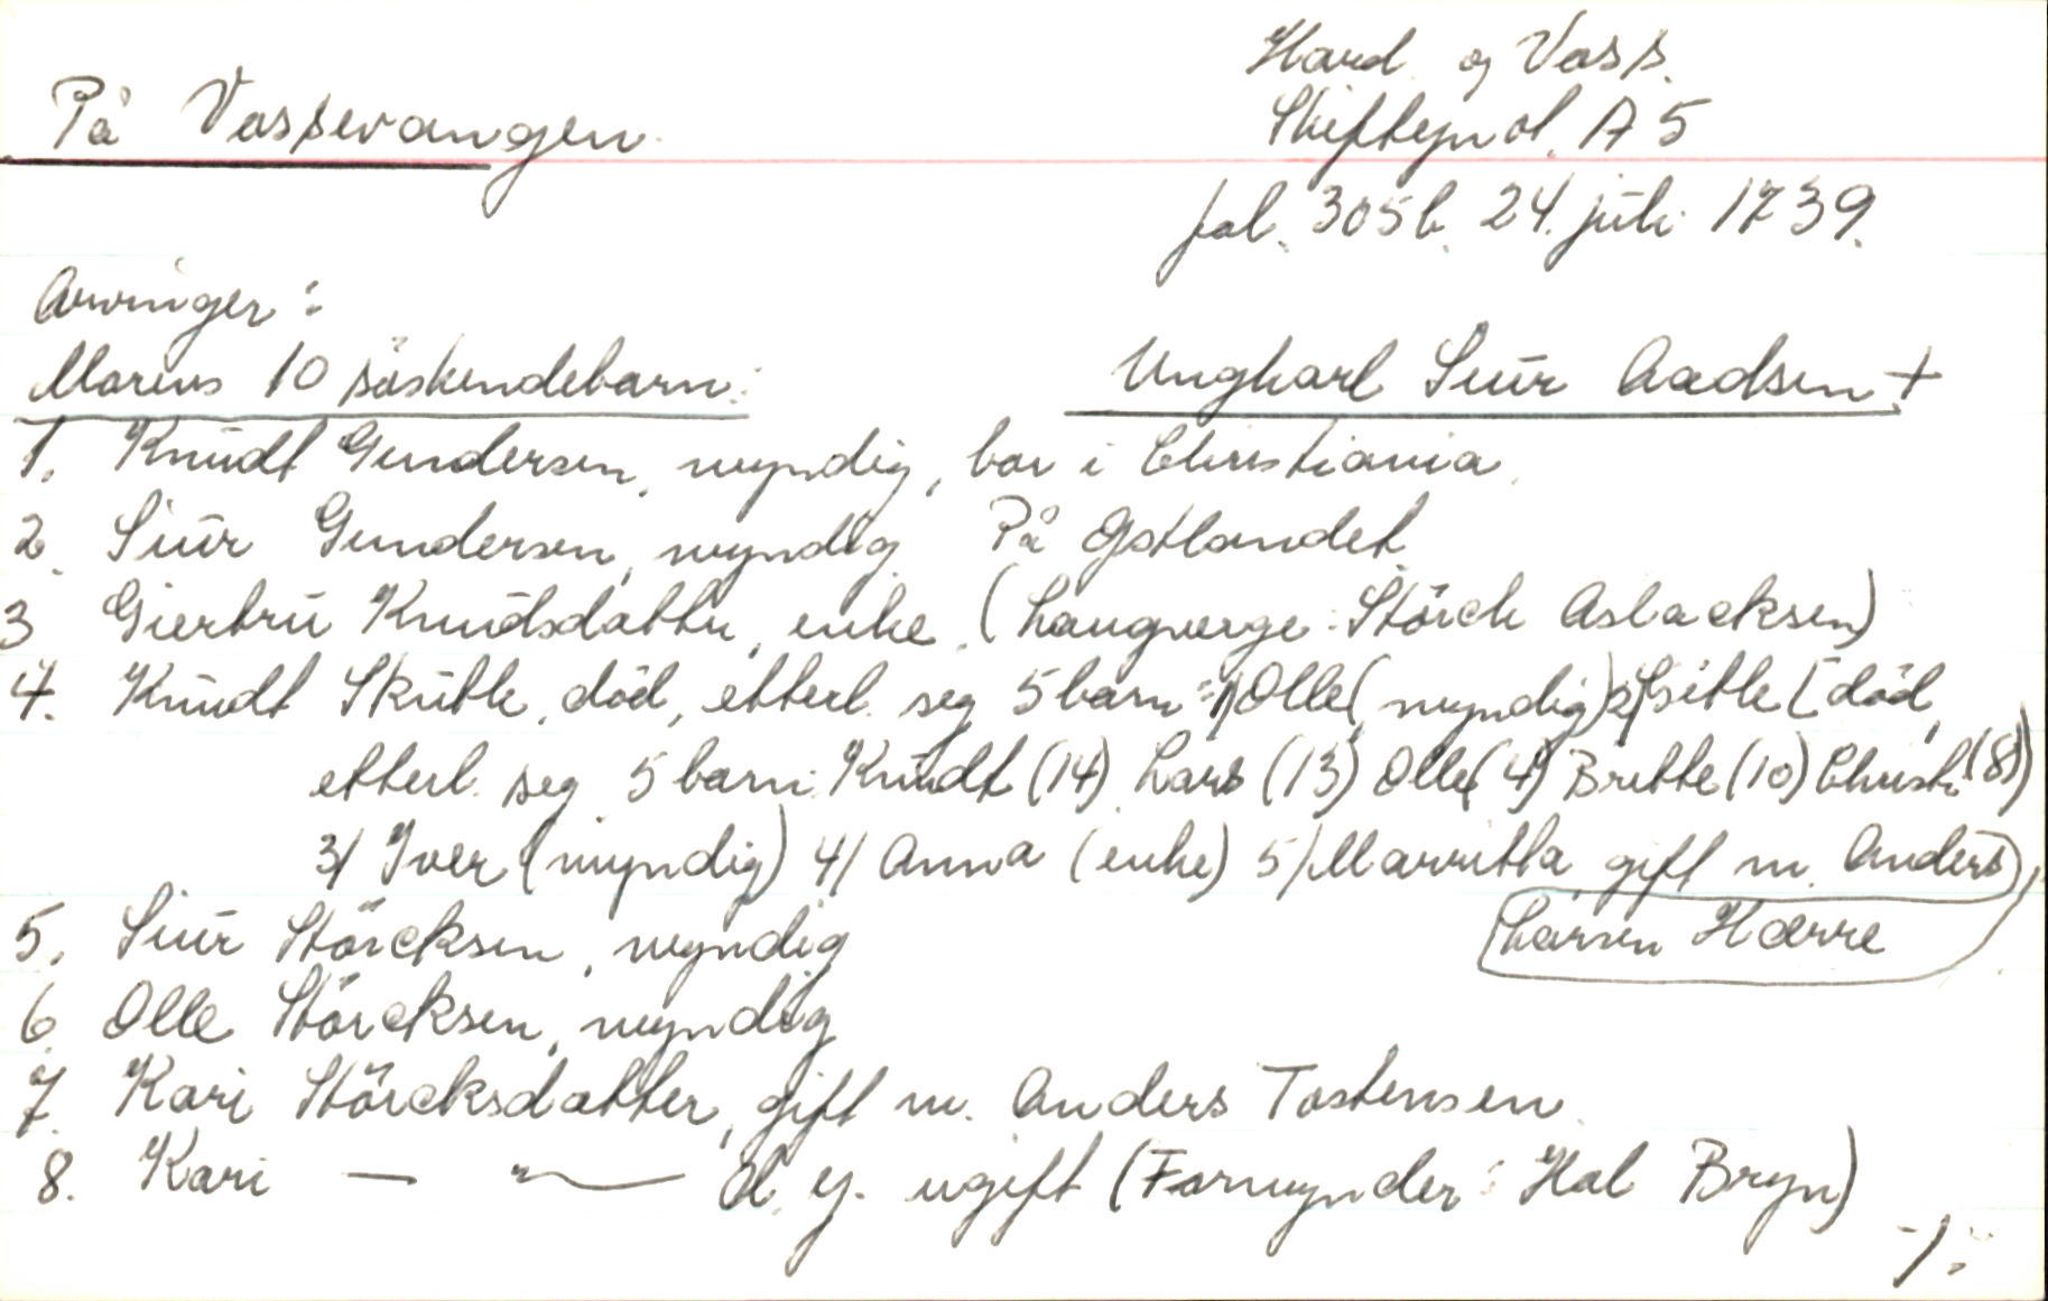 På Vossevangen.
Hard. og Voss.
Skifteprot. A 5
fol. 305b. 24. juli 1739.
Arvinger:
Morens 10 søskendebarn:
Ungkarl Siur Aadsen +
1. Knudt Gundersen, myndig, bor i Christiania.
2. Siur Gundersen, myndig. På Østlandet.
3 Giertru Knudsdatter, enke. (Laugverge: Störck Aslacksen)
4. Knudt Skutle, död, etterl. seg 5 barn: 1/ Olle (myndig) 2/ Sitle [död,
etterl. seg 5 barn: Knudt (14) Lars (13) Olle (4) Britte (10) Christi (8))
3/ Iver (myndig) 4/ Anna (enke) 5/ Marritha gift m. Anders
Larsen Hærre
5. Siur Störcksen, myndig
6. Olle Störcksen, myndig
7. Kari Störcksdatter, gift m. Anders Tostensen.
8. Kari — — d. y. ugift (Formynder: Hal Bryn)
-/.